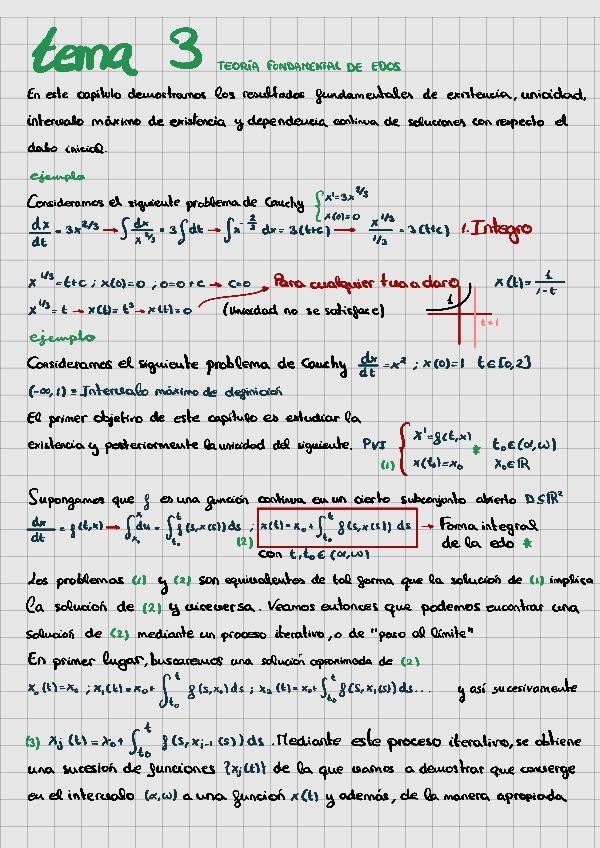 tema 3 TEORÍA FUNDAMENTAL DE EDOS
En este capítulo demostramos los resultados fundamentales de existencia, unicidad,
intervalo máximo de existencia y dependencia continua de soluciones con respecto el
dato inicial.
ejemplo
Consideramos el siguiente problema de Cauchy { x' = 3x^{2/3}
x(0) = 0
dx/dt = 3x^{2/3} → ∫ dx/x^{2/3} = 3∫dt → ∫x^{-2/3} dx = 3(t+c) → x^{1/3}/(1/3) = 3(t+c) 1. Integro
x^{1/3} = t+c ; x(0)=0 ; 0=0+c → c=0 Para cualquier t x(t) = 1/(1-t)
x^{1/3} = t → x(t) = t³ → x(t) = 0 (Unicidad no se satisface) 1 t=1
ejemplo
Consideramos el siguiente problema de Cauchy dx/dt = x² ; x(0)=1 t∈[0,2]
(-∞,1) = Intervalo máximo de definición
El primer objetivo de este capítulo es estudiar la
existencia y posteriormente la unicidad del siguiente. PVI (1) { x' = f(t,x) * t₀∈(α,ω)
x(t₀) = x₀ x₀∈ℝ
Supongamos que f es una función continua en un cierto subconjunto abierto D⊆ℝ²
dx/dt = f(t,x) → ∫_{x₀}^{x} du = ∫_{t₀}^{t} f(s,x(s)) ds ; (2) x(t) = x₀ + ∫_{t₀}^{t} f(s,x(s)) ds → Forma integral
de la edo *
con t,t₀∈(α,ω)
Los problemas (1) y (2) son equivalentes de tal forma que la solución de (1) implica
la solución de (2) y viceversa. Veamos entonces que podemos encontrar una
solución de (2) mediante un proceso iterativo, o de "paso al límite"
En primer lugar, buscaremos una solución aproximada de (2)
x₀(t) = x₀ ; x₁(t) = x₀ + ∫_{t₀}^{t} f(s,x₀) ds ; x₂(t) = x₀ + ∫_{t₀}^{t} f(s,x₁(s)) ds ... y así sucesivamente
(3) x_j(t) = x₀ + ∫_{t₀}^{t} f(s,x_{j-1}(s)) ds. Mediante este proceso iterativo, se obtiene
una sucesión de funciones {x_j(t)} de la que vamos a demostrar que converge
en el intervalo (α,ω) a una función x(t) y además, de la manera apropiada